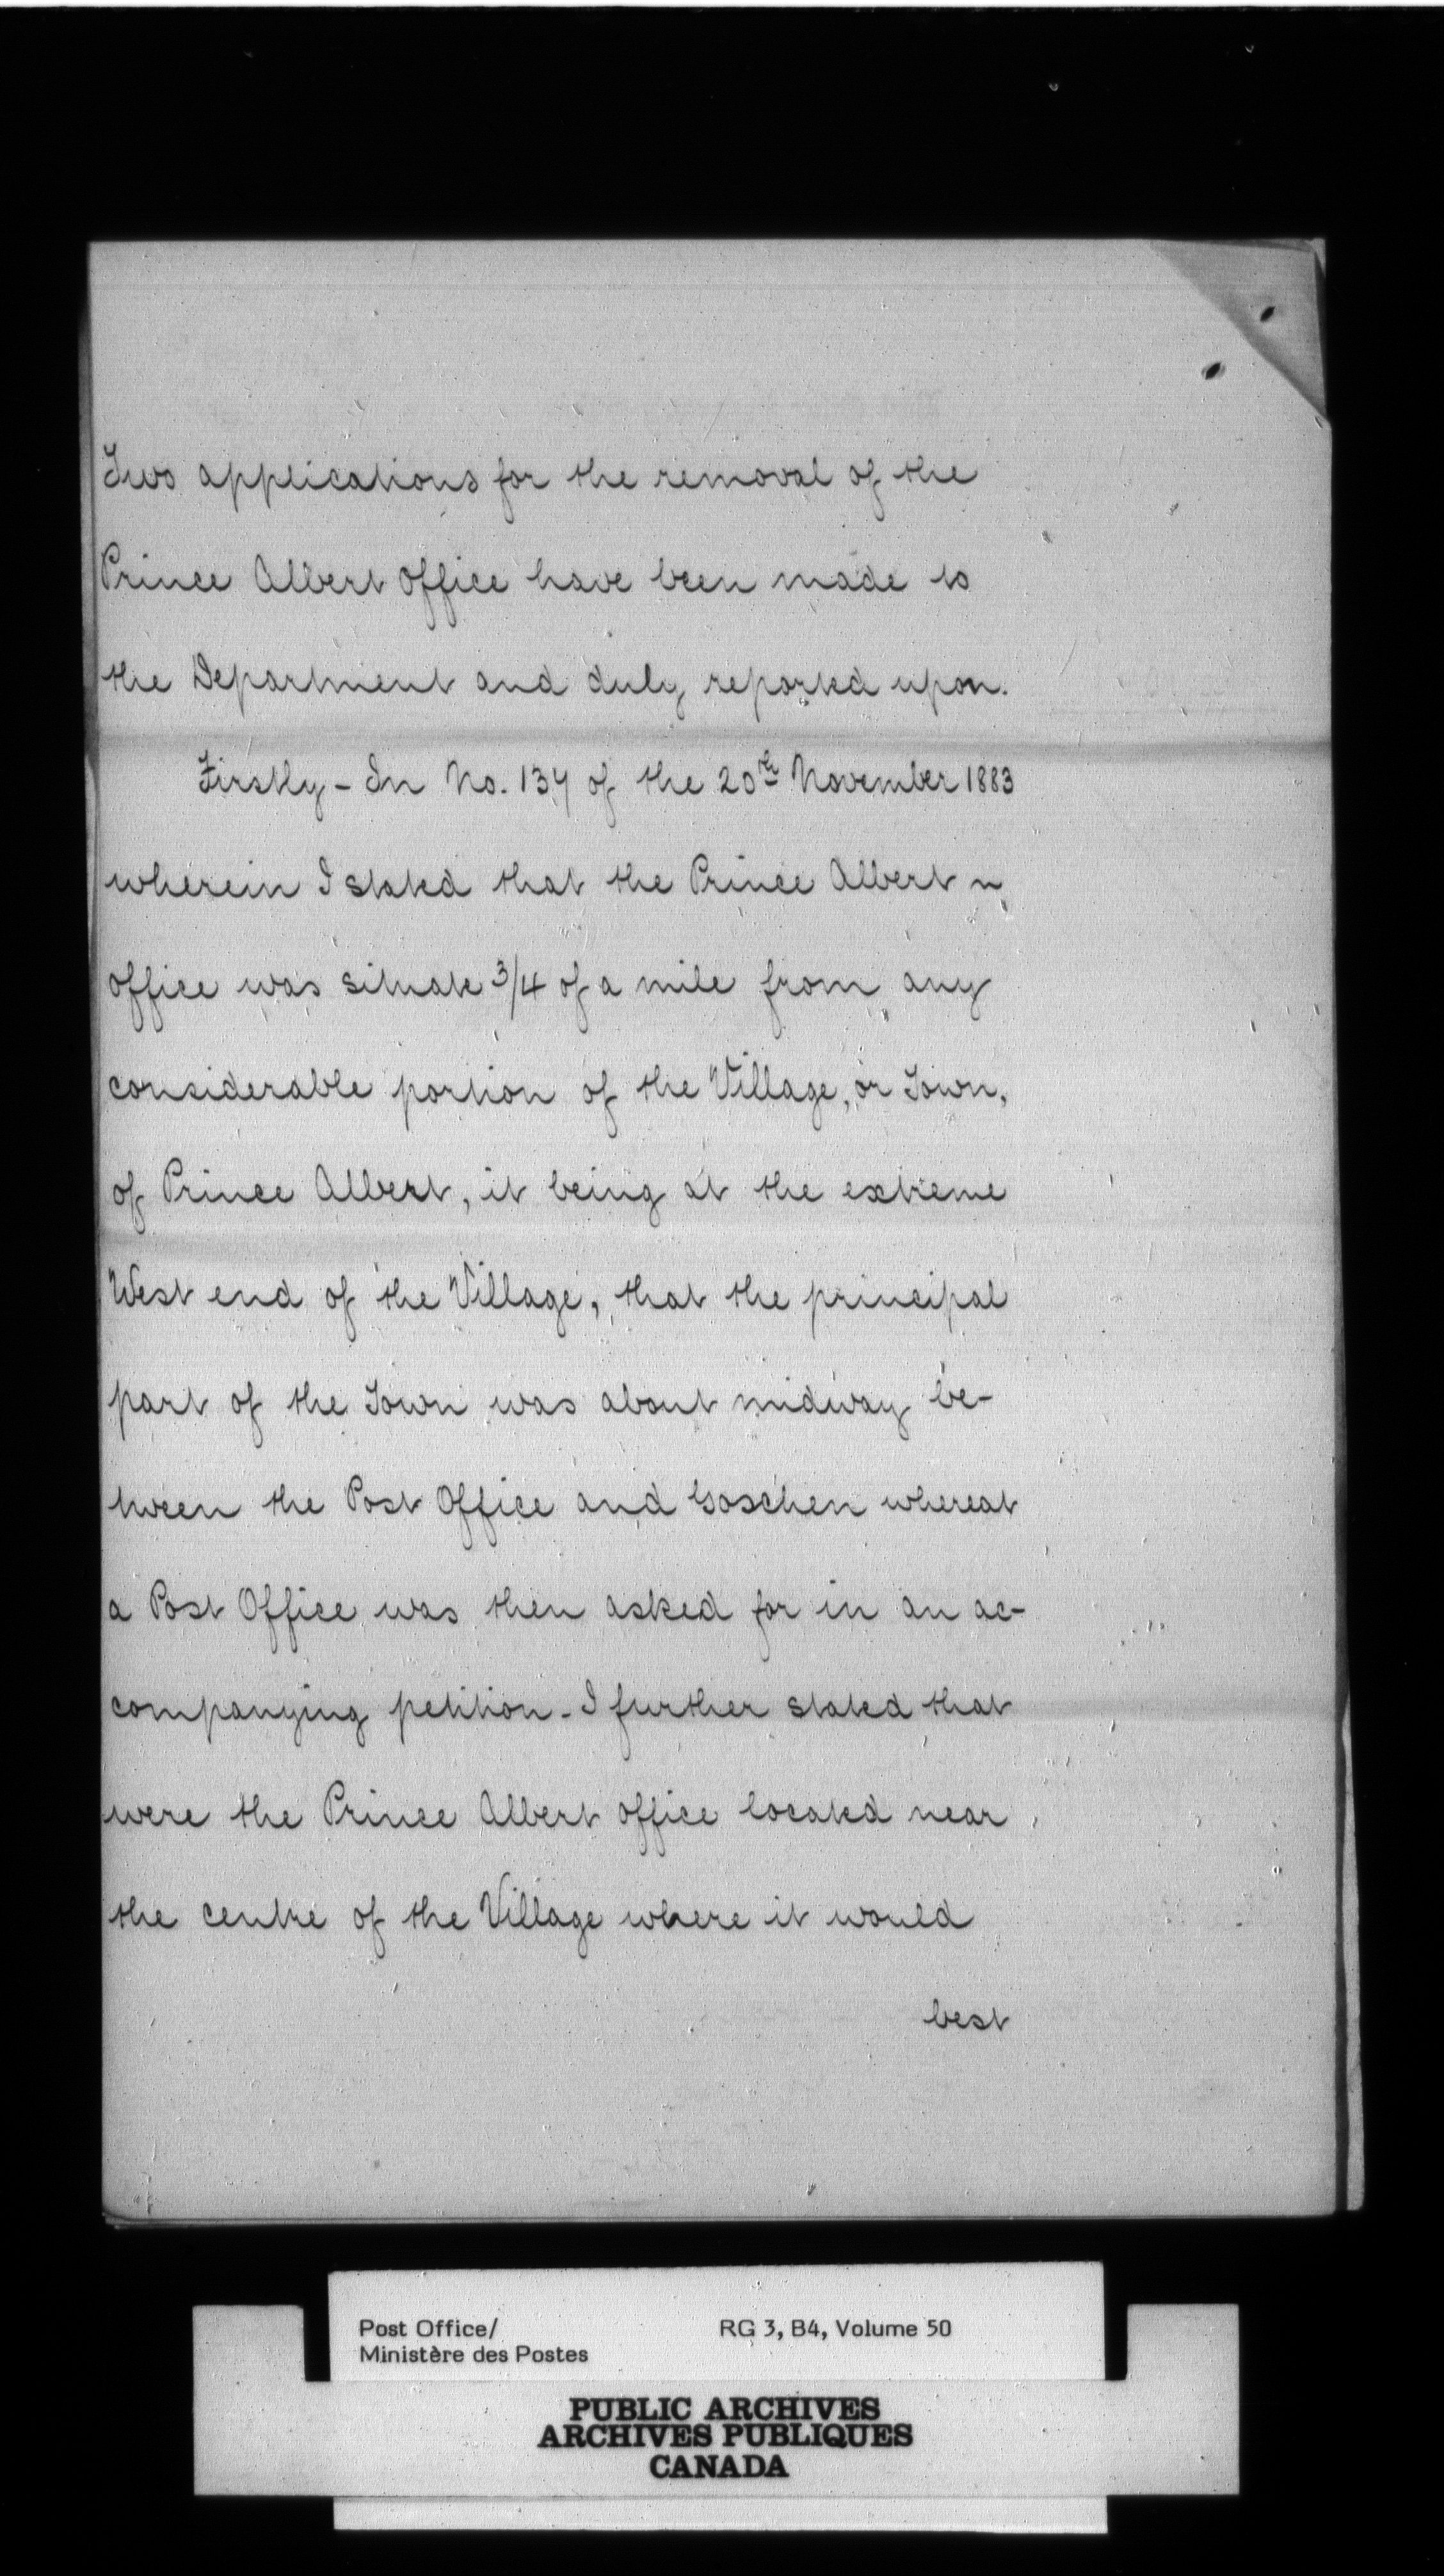 Two applications for the removal of the
Prince Albert Office have been made to
the Department and duly reported upon.
Firstly - In No. 137 of the 20th November 1883
wherein I stated that the Prince Albert
office was situate 3/4 of a mile from any
considerable portion of the Village, or Town,
of Prince Albert, it being at the extreme
West end of the Village, that the principal
part of the Town was about midway be-
tween the Post Office and Goschen whereat
a Post Office was then asked for in an ac-
companying petition - I further stated that
were the Prince Albert office located near
the centre of the Village where it would
best
Post Office/ RG 3, B4, Volume 50
Ministère des Postes
PUBLIC ARCHIVES
ARCHIVES PUBLIQUES
CANADA